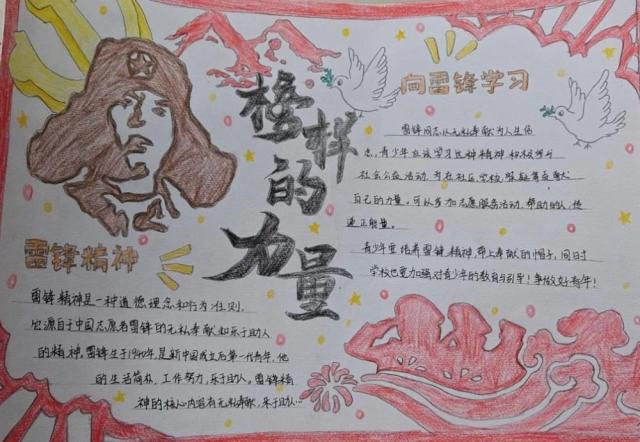 榜样
的
力量
向雷锋学习
雷锋同志以无私奉献为人生信
念，青少年应该学习这种精神，积极参与
社会公益活动，在社区、学校、家庭等贡献
自己的力量。可以参加志愿服务活动，帮助他人，传
递正能量。
青少年要培养雷锋精神，带上奉献的帽子，同时
学校也要加强对青少年的教育与引导！争做好青年！
雷锋精神
雷锋精神是一种道德理念和行为准则，
它源自于中国志愿者雷锋的无私奉献和乐于助人
的精神。雷锋生于1940年，是新中国成立后第一代青年，他
的生活简朴，工作努力，乐于助人。雷锋精
神的核心内容有无私奉献，乐于助人...